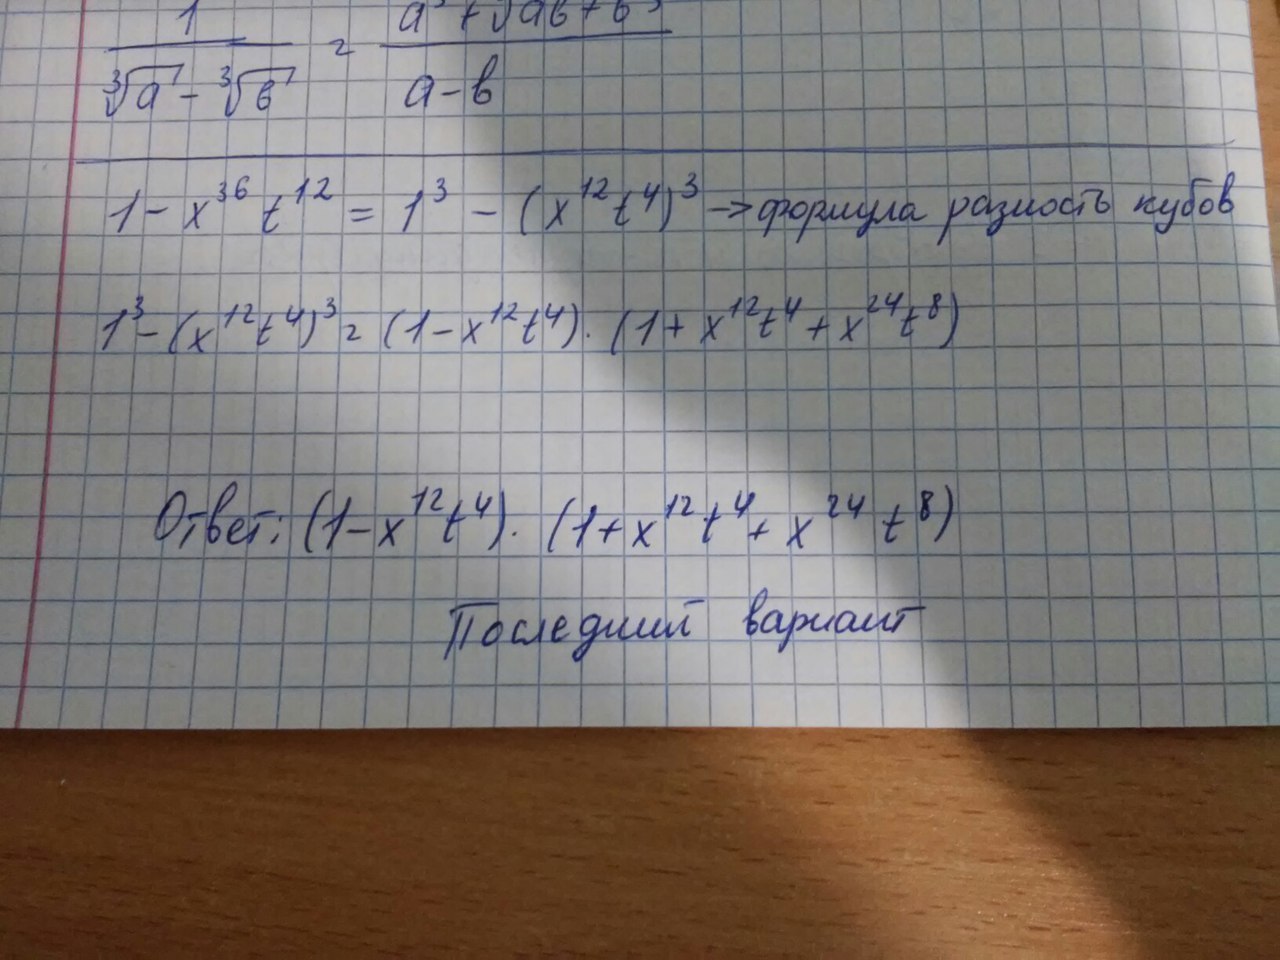 1 / (∛a - ∛в) = / (a-в)
1 - x³⁶ t¹² = 1³ - (x¹²t⁴)³ → формула разность кубов
1³ - (x¹²t⁴)³ = (1 - x¹²t⁴) · (1 + x¹²t⁴ + x²⁴t⁸)
Ответ: (1 - x¹²t⁴) · (1 + x¹²t⁴ + x²⁴ t⁸)
Последний вариант